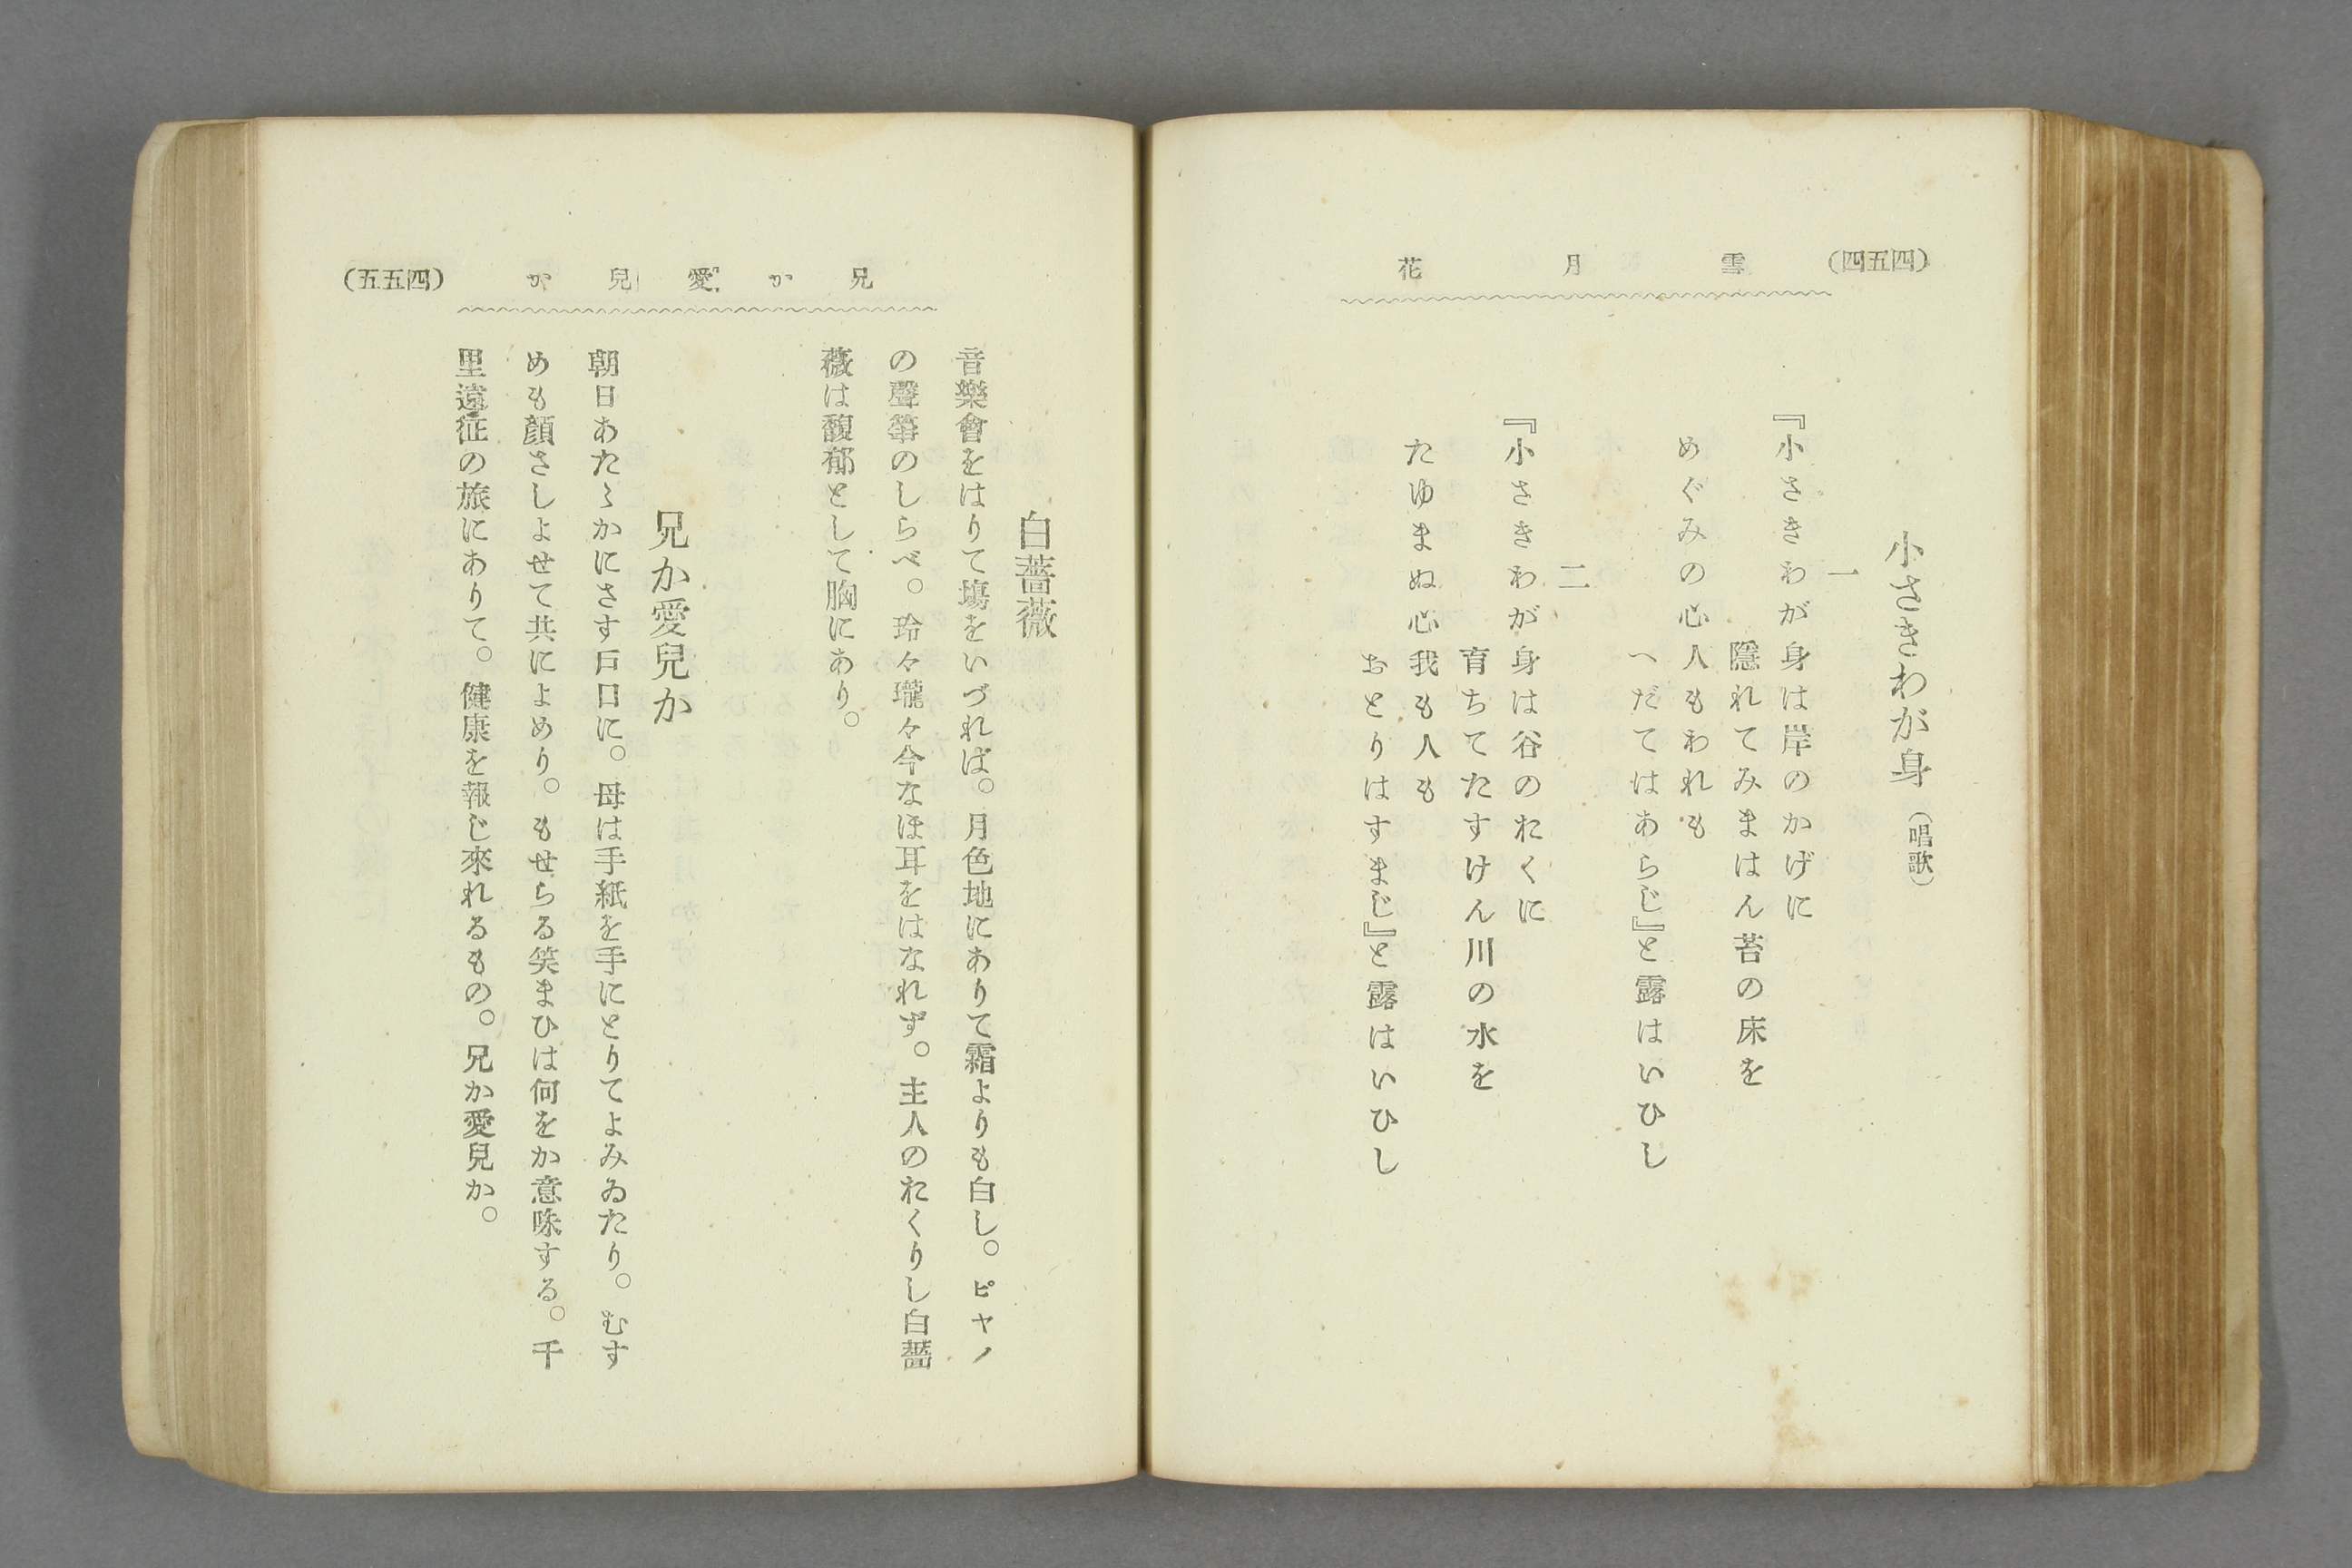 (四五四)
雪月花
小さきわが身(唱歌)
一
『小さきわが身は岸のかげに
隱れてみまはん苔の床を
めぐみの心人もわれも
へだてはあらじ』と露はいひし
二
『小さきわが身は谷のおくに
育ちてたすけん川の水を
たゆまぬ心我も人も
おとりはすまじ』と露はいひし
兄か愛兒か
(四五五)
白薔薇
音樂會をはりて塲をいづれば。月色地にありて霜よりも白し。ピヤノ
の聲箏のしらべ。玲々瓏々今なほ耳をはなれず。主人のおくりし白薔
薇は馥郁として胸にあり。
兄か愛兒か
朝日あたゝかにさす戸口に。母は手紙を手にとりてよみゐたり。むす
めも顏さしよせて共によめり。もせらる笑まひは何をか意味する。千
里遠征の旅にありて。健康を報じ來れるもの。兄か愛兒か。